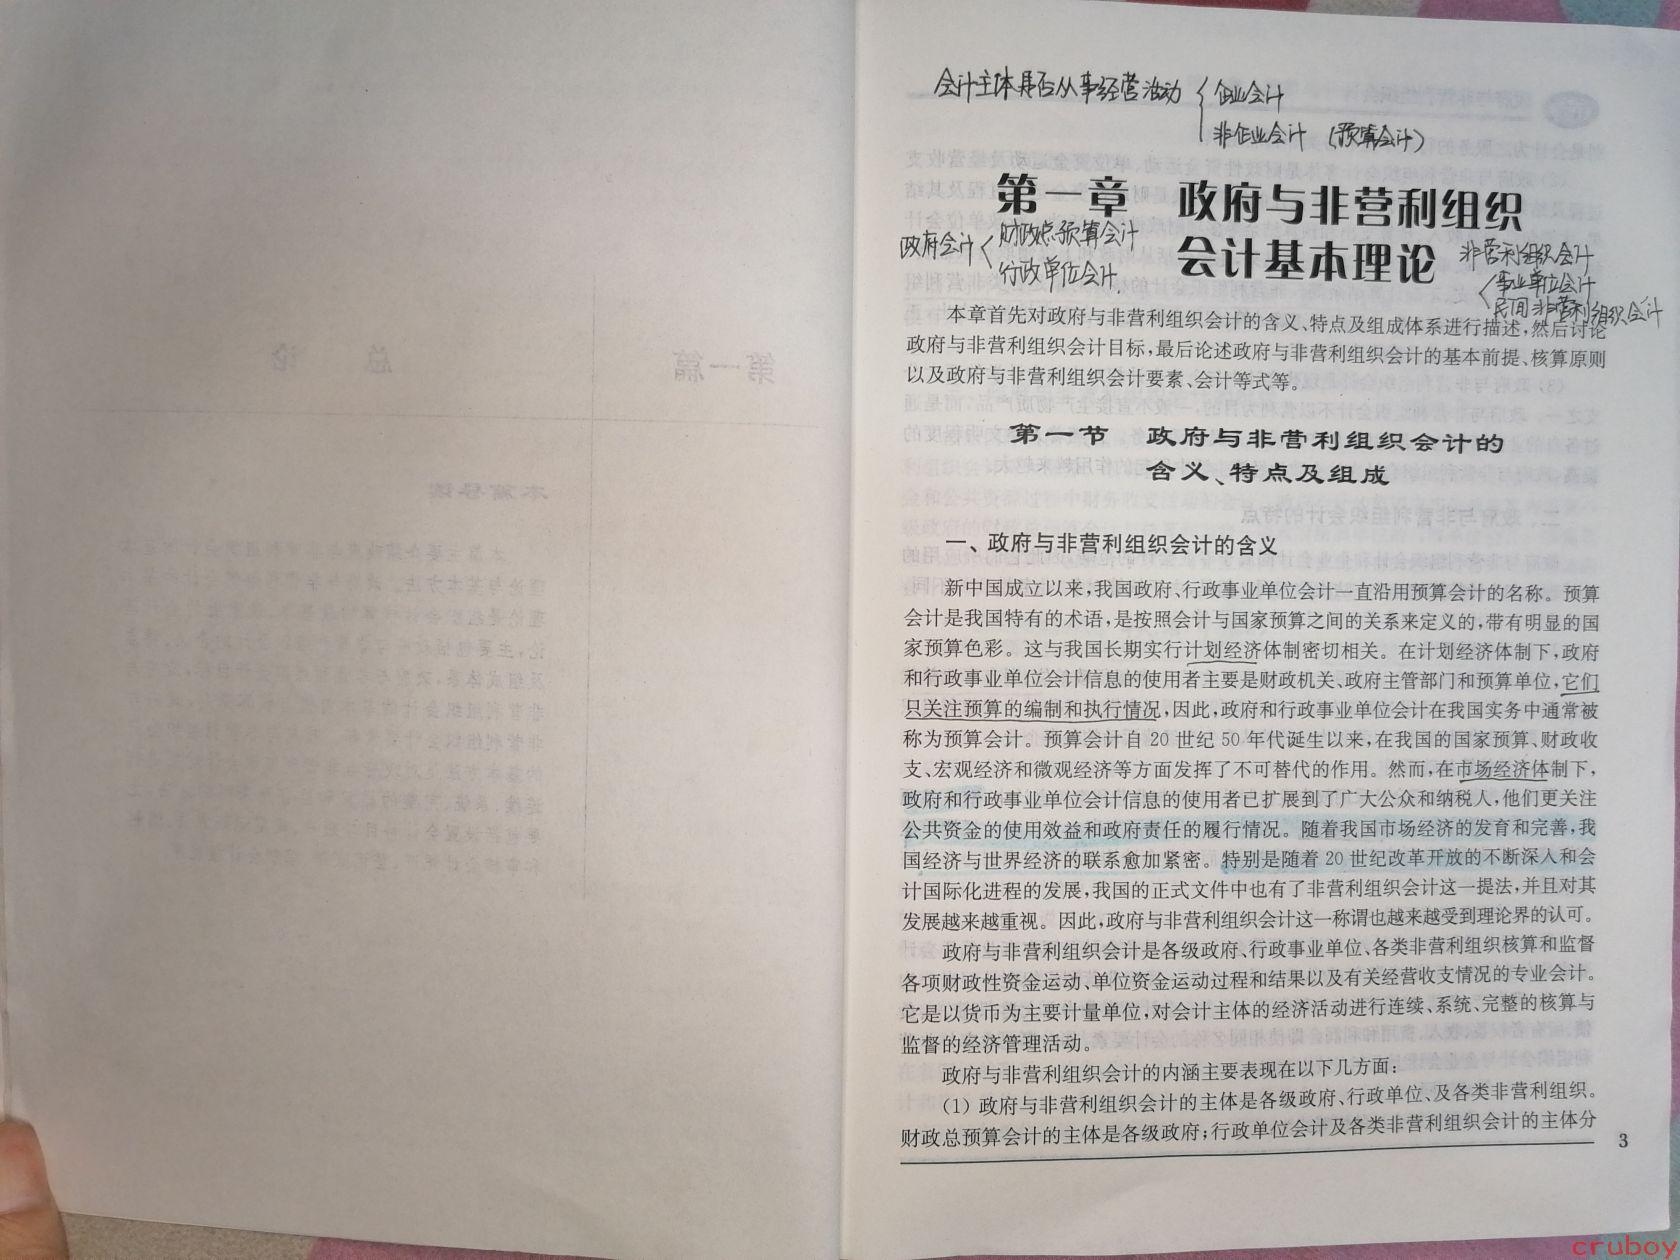 会计主体是否从事经营活动 { 企业会计
非企业会计 (预算会计)
第一章 政府与非营利组织
会计基本理论
政府会计 < 财政总预算会计
行政单位会计.
非营利组织会计
< 事业单位会计
民间非营利组织会计
本章首先对政府与非营利组织会计的含义、特点及组成体系进行描述,然后讨论
政府与非营利组织会计目标,最后论述政府与非营利组织会计的基本前提、核算原则
以及政府与非营利组织会计要素、会计等式等。
第一节 政府与非营利组织会计的
含义、特点及组成
一、政府与非营利组织会计的含义
新中国成立以来,我国政府、行政事业单位会计一直沿用预算会计的名称。预算
会计是我国特有的术语,是按照会计与国家预算之间的关系来定义的,带有明显的国
家预算色彩。这与我国长期实行计划经济体制密切相关。在计划经济体制下,政府
和行政事业单位会计信息的使用者主要是财政机关、政府主管部门和预算单位,它们
只关注预算的编制和执行情况,因此,政府和行政事业单位会计在我国实务中通常被
称为预算会计。预算会计自 20 世纪 50 年代诞生以来,在我国的国家预算、财政收
支、宏观经济和微观经济等方面发挥了不可替代的作用。然而,在市场经济体制下,
政府和行政事业单位会计信息的使用者已扩展到了广大公众和纳税人,他们更关注
公共资金的使用效益和政府责任的履行情况。随着我国市场经济的发育和完善,我
国经济与世界经济的联系愈加紧密。特别是随着 20 世纪改革开放的不断深入和会
计国际化进程的发展,我国的正式文件中也有了非营利组织会计这一提法,并且对其
发展越来越重视。因此,政府与非营利组织会计这一称谓也越来越受到理论界的认可。
政府与非营利组织会计是各级政府、行政事业单位、各类非营利组织核算和监督
各项财政性资金运动、单位资金运动过程和结果以及有关经营收支情况的专业会计。
它是以货币为主要计量单位,对会计主体的经济活动进行连续、系统、完整的核算与
监督的经济管理活动。
政府与非营利组织会计的内涵主要表现在以下几方面:
(1) 政府与非营利组织会计的主体是各级政府、行政单位、及各类非营利组织。
财政总预算会计的主体是各级政府;行政单位会计及各类非营利组织会计的主体分
3
cruboy